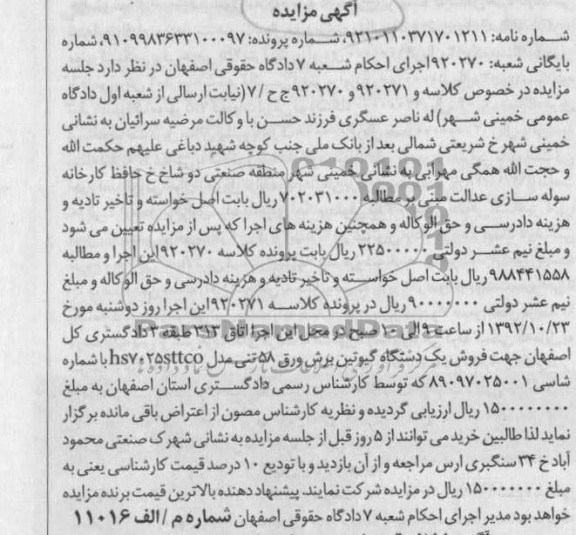 آگهی مزایده
شماره نامه: ۹۲۱۰۱۱۰۳۷۱۷۰۱۲۱۱، شماره پرونده: ۹۱۰۹۹۸۳۶۳۳۱۰۰۰۹۷، شماره
بایگانی شعبه: ۹۲۰۲۷۰ اجرای احکام شعبه ۷ دادگاه حقوقی اصفهان در نظر دارد جلسه
مزایده در خصوص کلاسه و ۹۲۰۲۷۱ و ۹۲۰۲۷۰ ج ح /۷ (نیابت ارسالی از شعبه اول دادگاه
عمومی خمینی شهر) له ناصر عسگری فرزند حسن با وکالت مرضیه سرائیان به نشانی
خمینی شهر خ شریعتی شمالی بعد از بانک ملی جنب کوچه شهید دباغی علیهم حکمت الله
و حجت الله همگی مهرابی به نشانی خمینی شهر منطقه صنعتی دو شاخ خ حافظ کارخانه
سوله سازی عدالت مبنی بر مطالبه ۷۰۲۰۳۱۰۰۰ ریال بابت اصل خواسته و تاخیر تادیه و
هزینه دادرسی و حق الوکاله و همچنین هزینه های اجرا که پس از مزایده تعیین می شود
و مبلغ نیم عشر دولتی ۲۲۵۰۰۰۰۰ ریال بابت پرونده کلاسه ۹۲۰۲۷۰ این اجرا و مطالبه
۹۸۸۴۴۱۵۵۸ ریال بابت اصل خواسته و تاخیر تادیه و هزینه دادرسی و حق الوکاله و مبلغ
نیم عشر دولتی ۹۰۰۰۰۰۰۰ ریال در پرونده کلاسه ۹۲۰۲۷۱ این اجرا روز دوشنبه مورخ
۱۳۹۲/۱۰/۲۳ از ساعت ۹ الی ۱۰ صبح در محل این اجرا اتاق ۳۱۳ طبقه ۳ دادگستری کل
اصفهان جهت فروش یک دستگاه گیوتین برش ورق ۵۸ تنی مدل hs۷۰۲۵sttco با شماره
شاسی ۸۹۰۹۷۰۲۵۰۰۱ که توسط کارشناس رسمی دادگستری استان اصفهان به مبلغ
۱۵۰۰۰۰۰۰۰۰ ریال ارزیابی گردیده و نظریه کارشناس مصون از اعتراض باقی مانده برگزار
نماید لذا طالبین خرید می توانند از ۵ روز قبل از جلسه مزایده به نشانی شهرک صنعتی محمود
آباد خ ۳۴ سنگبری ارس مراجعه و از آن بازدید و با تودیع ۱۰ درصد قیمت کارشناسی یعنی به
مبلغ ۱۵۰۰۰۰۰۰۰ ریال در مزایده شرکت نمایند. پیشنهاد دهنده بالاترین قیمت برنده مزایده
خواهد بود مدیر اجرای احکام شعبه ۷ دادگاه حقوقی اصفهان شماره م / الف ۱۱۰۱۶
ParsNamadData